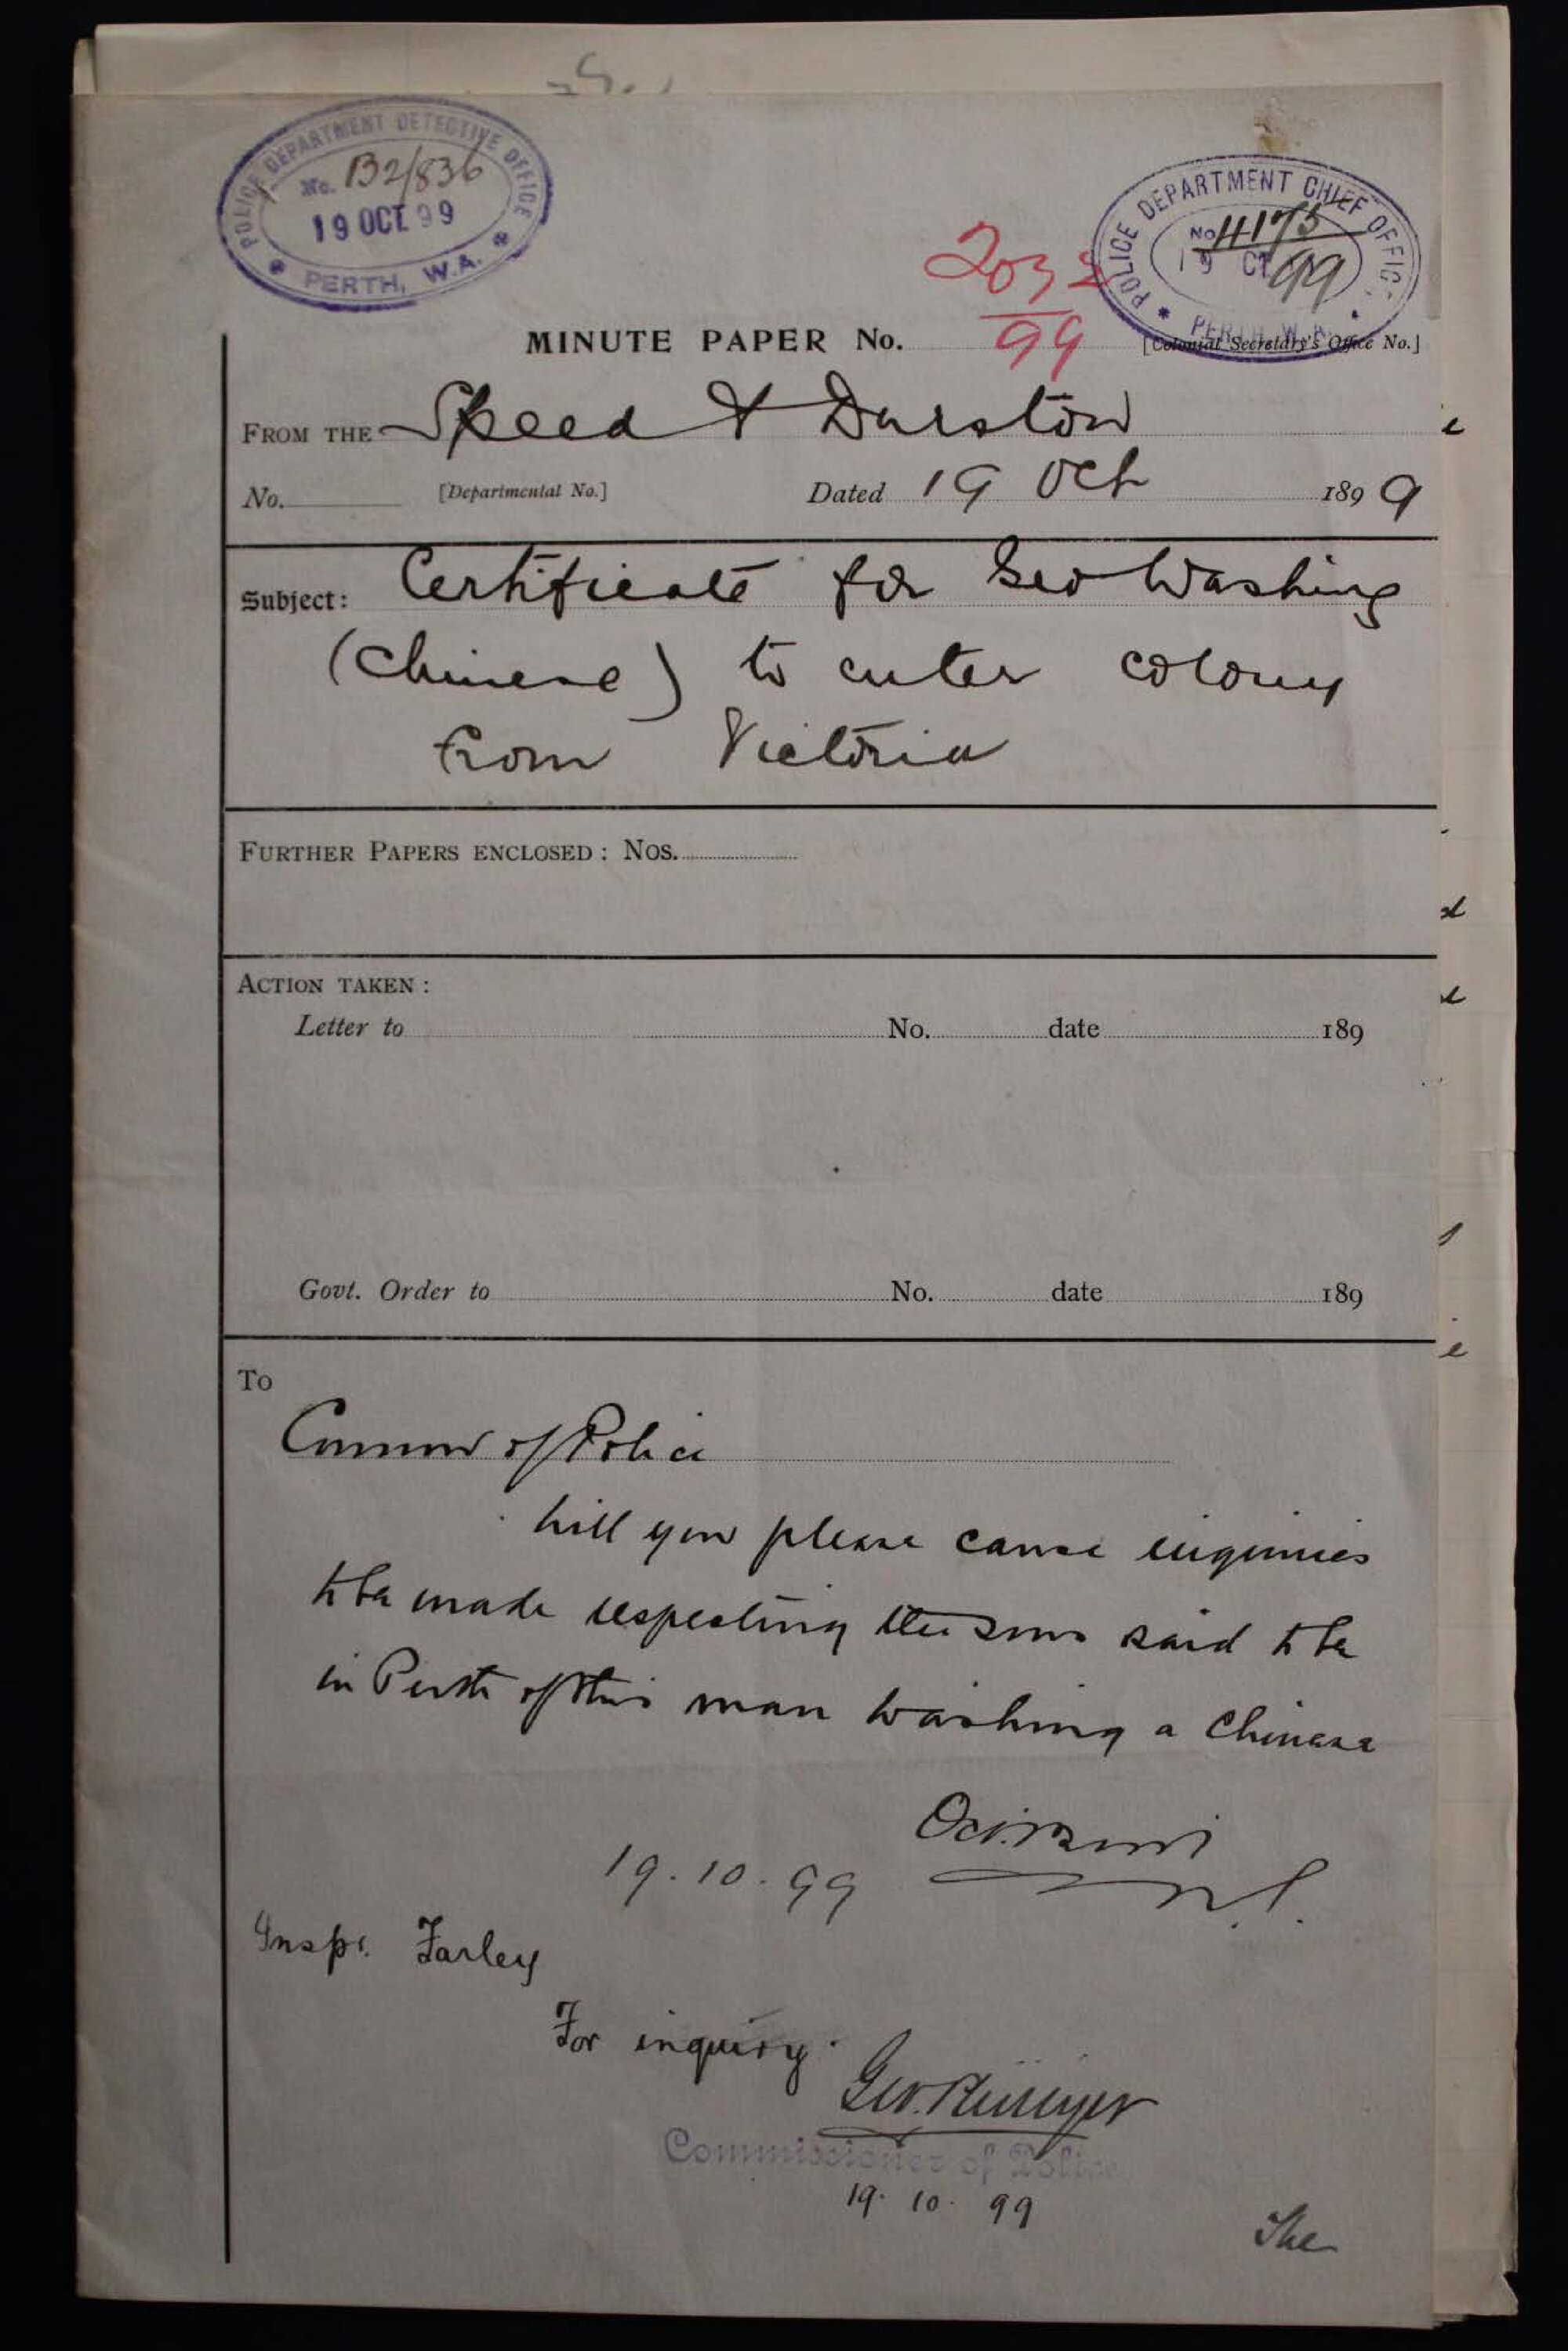 POLICE DEPARTMENT DETECTIVE OFFICE
No. B2/836
19 OCT 99
PERTH, W.A.
POLICE DEPARTMENT CHIEF OFFICE
No 4175
19 OCT 99
PERTH W.A.
2032
99
MINUTE PAPER No.
[Colonial Secretary's Office No.]
FROM THE Speed & Durston
No. [Departmental No.] Dated 19 Oct 1899
Subject: Certificate for Geo Washing
(Chinese) to enter colony
from Victoria
FURTHER PAPERS ENCLOSED: Nos.
ACTION TAKEN:
Letter to No. date 189
Govt. Order to No. date 189
To
Commr of Police
Will you please cause inquiries
to be made respecting the sons said to be
in Perth of this man Washing a Chinese
Oct. Burt
19.10.99
Inspr. Farley
For inquiry.
Geo. Phillips
Commissioner of Police
19. 10. 99
The